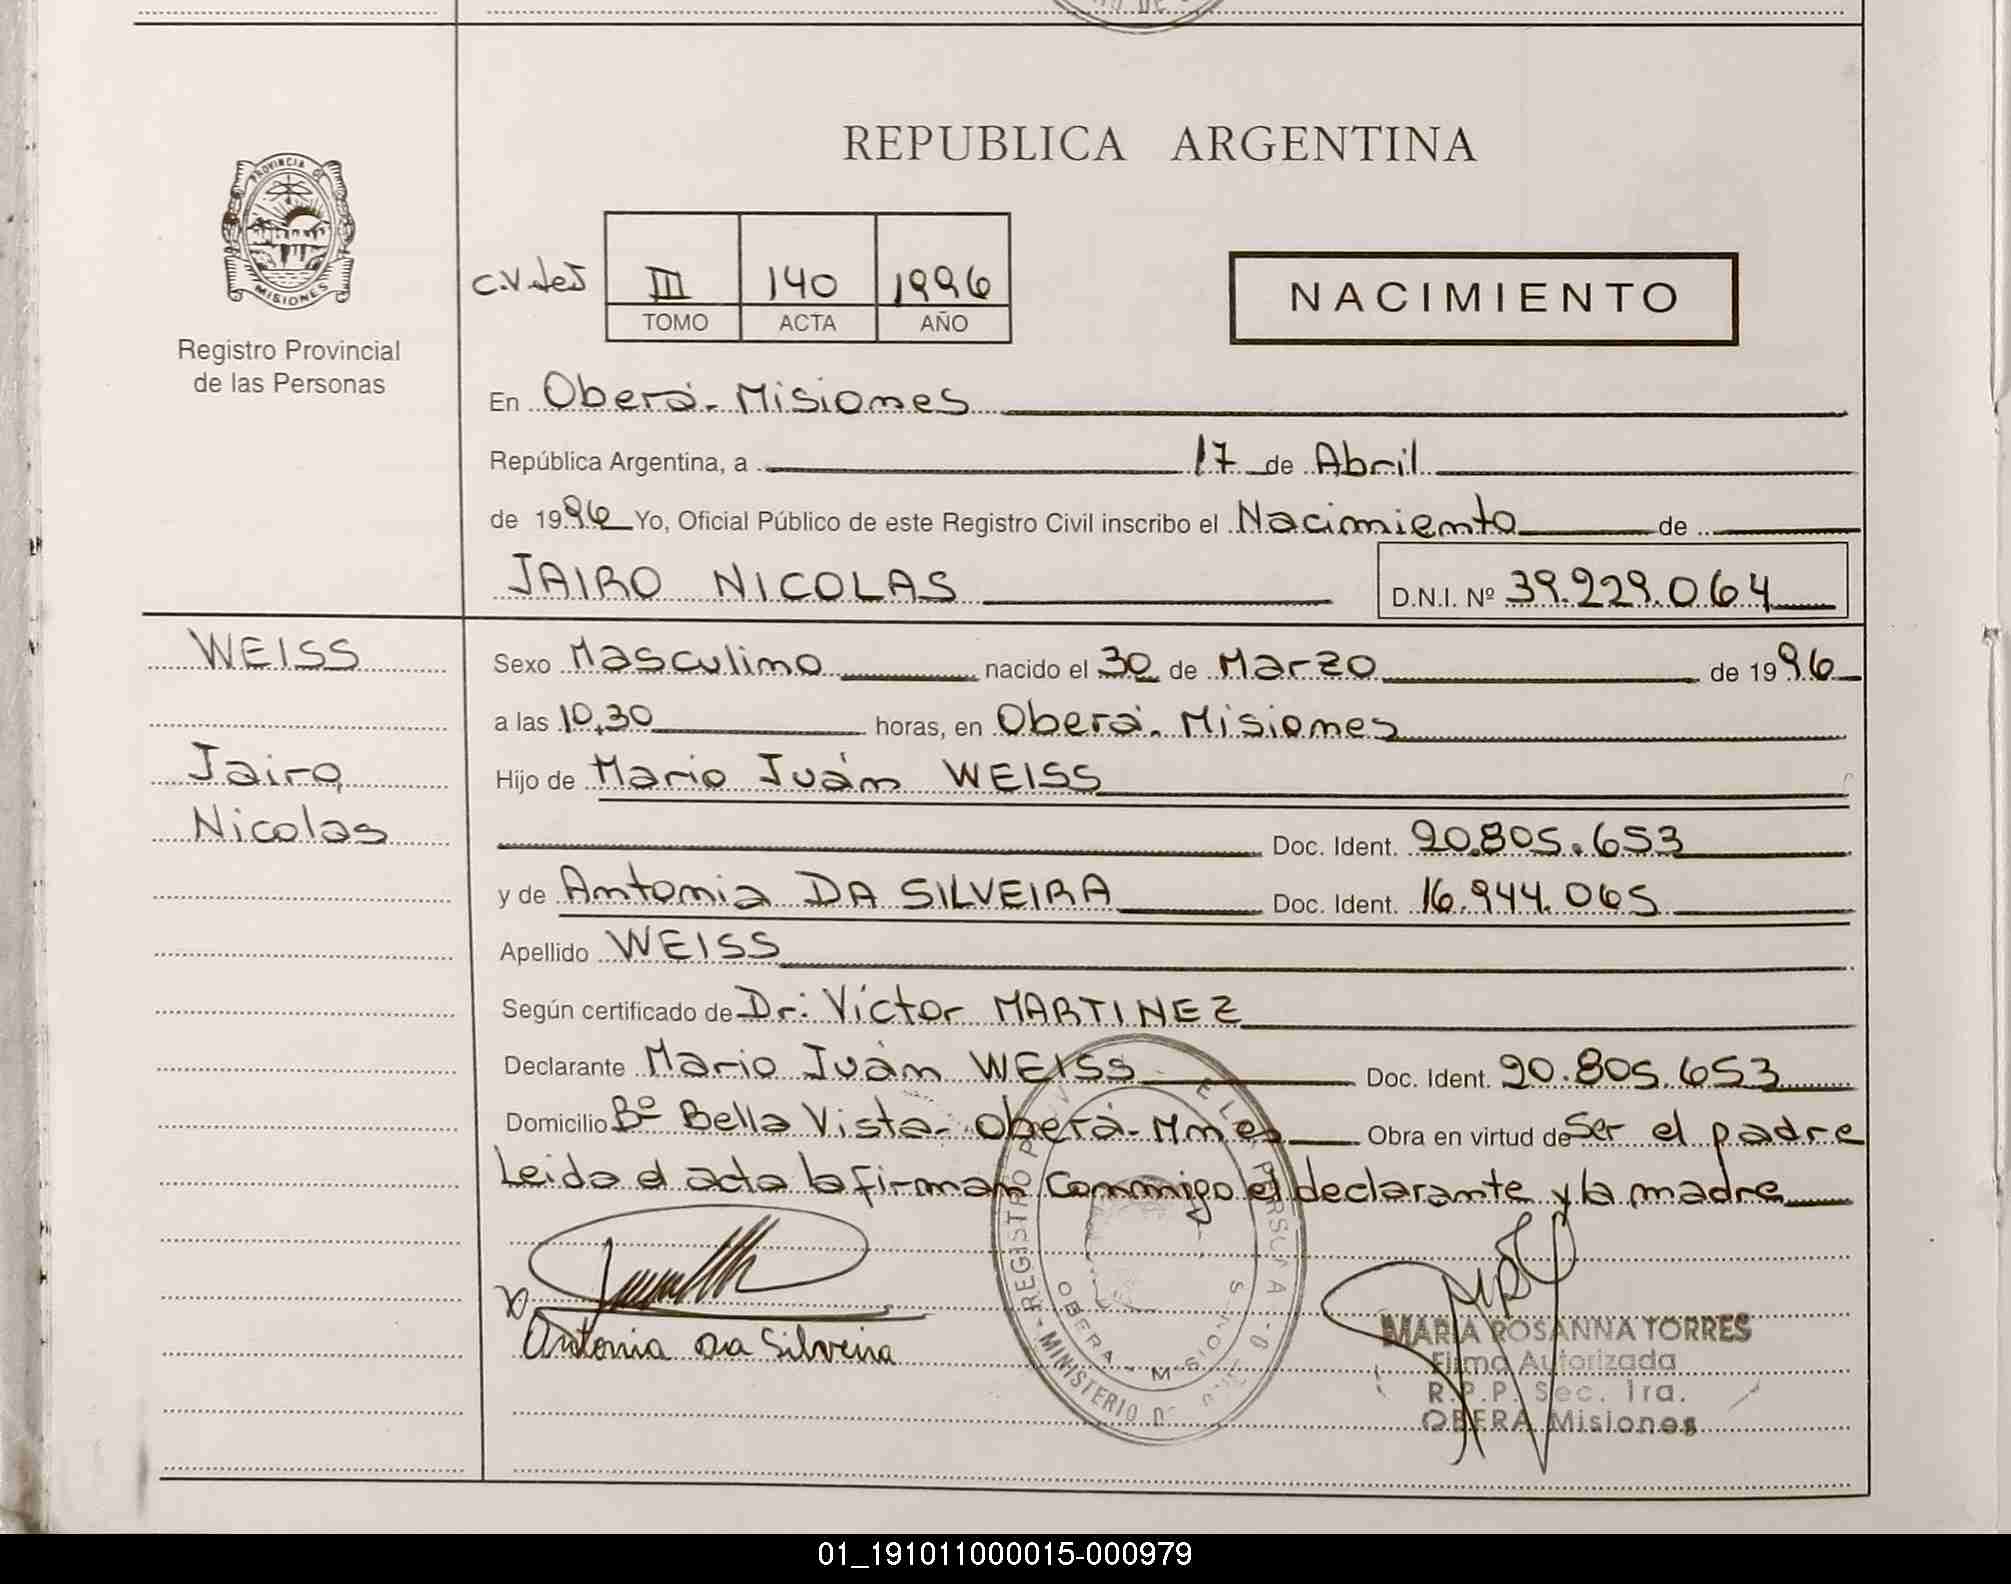 REPUBLICA ARGENTINA
PROVINCIA DE
MISIONES
Registro Provincial
de las Personas
III 140 1996
TOMO ACTA AÑO
NACIMIENTO
En Oberá - Misiones
República Argentina, a 17 de Abril
de 1996 Yo, Oficial Público de este Registro Civil inscribo el Nacimiento de
JAIRO NICOLAS
D.N.I. Nº 39.229.064
WEISS
Jairo
Nicolas
Sexo Masculino nacido el 30 de Marzo de 1996
a las 10,30 horas, en Oberá. Misiones
Hijo de Mario Juán WEISS
Doc. Ident. 20.805.653
y de Antonia DA SILVEIRA Doc. Ident. 16.944.065
Apellido WEISS
Según certificado de Dr: Víctor MARTINEZ
Declarante Mario Juán WEISS Doc. Ident. 20.805.653
Domicilio Bº Bella Vista - Oberá - Mnes Obra en virtud de Ser el padre
Leida el acta la firman conmigo el declarante y la madre
Antonia Da Silveira
REGISTRO
OBERA - MISIONES
MINISTERIO DE
MARIA ROSANNA TORRES
Firma Autorizada
R.P.P. Sec. 1ra.
OBERA Misiones
01_191011000015-000979